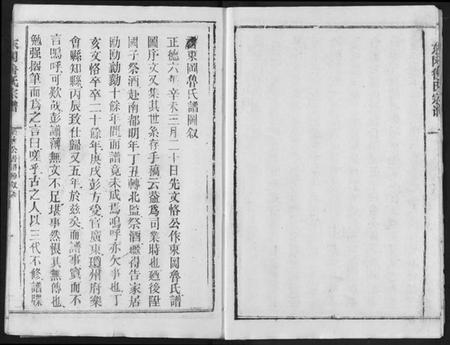 東岡魯氏譜圖叙
正德六年辛未三月二十日先文恪公作東岡魯氏譜
圖序文又集其世系存手藁云葢爲司業時也廼後陞
國子祭酒赴南都明年丁丑轉北監祭酒繼得告家居
勛勛勷勷十餘年間而譜竟未成焉嗚呼亦欠事也丁
亥文恪卒卒二十餘年庚戌彭方受官廣東瓊州府樂
會縣知縣丙辰致仕歸又五年於兹矣而譜事寘而不
言嗚呼可歎哉彭譾薄無文不足堪事然恨其無傳也
勉强搦筆而爲之言曰嗟乎古之人以三代不修譜牒
東岡魯氏宗譜
東岡魯氏宗譜